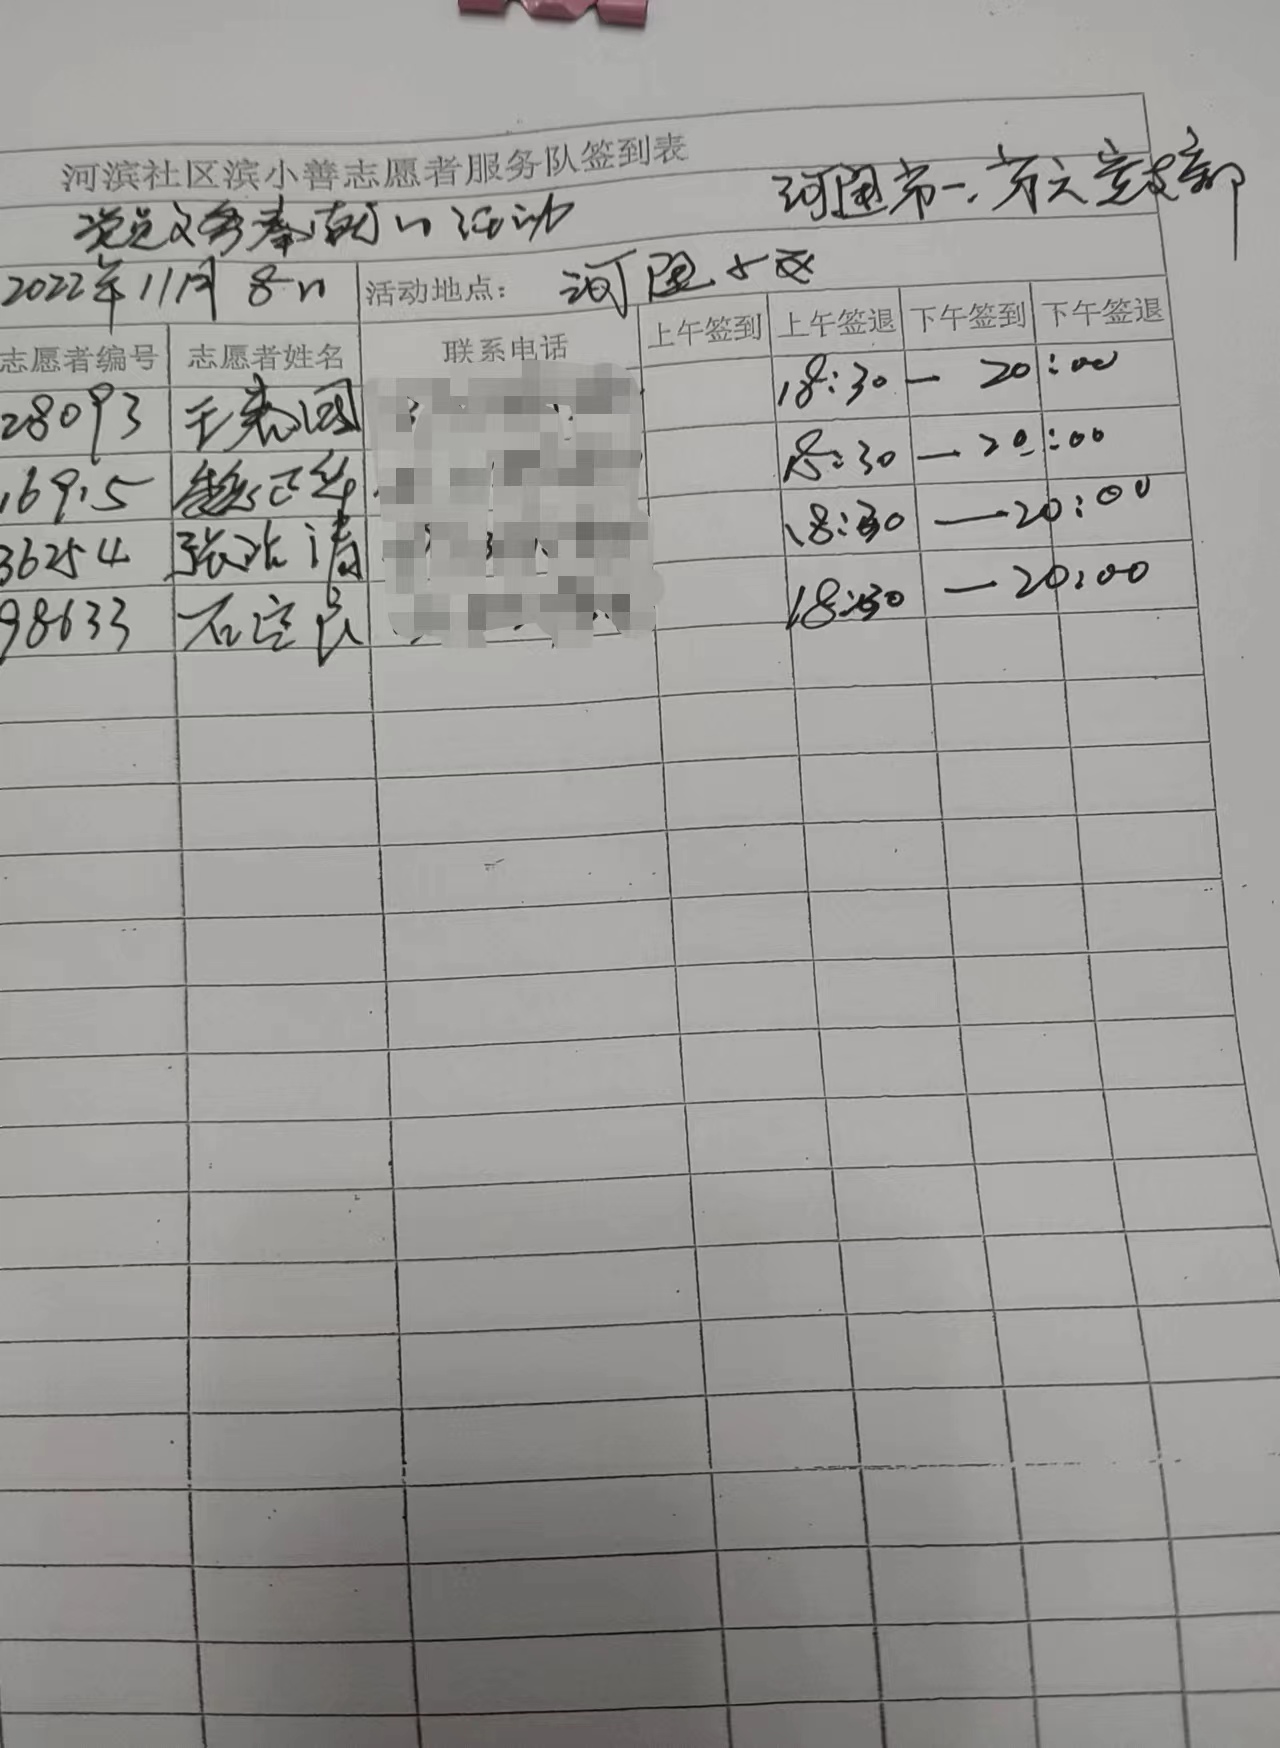 河滨社区滨小善志愿者服务队签到表
党员义务奉献日活动 河图第一、第六党支部
2022年11月8日 活动地点： 河图小区
志愿者编号 志愿者姓名 联系电话 上午签到 上午签退 下午签到 下午签退
28093 18:30 — 20:00
16915 18:30 — 20:00
36254 张 清 18:30 — 20:00
98633 石定良 18:30 — 20:00